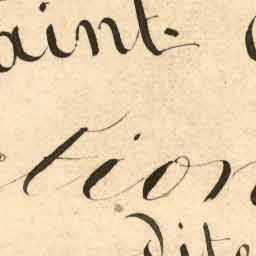 aint.
tion
dite